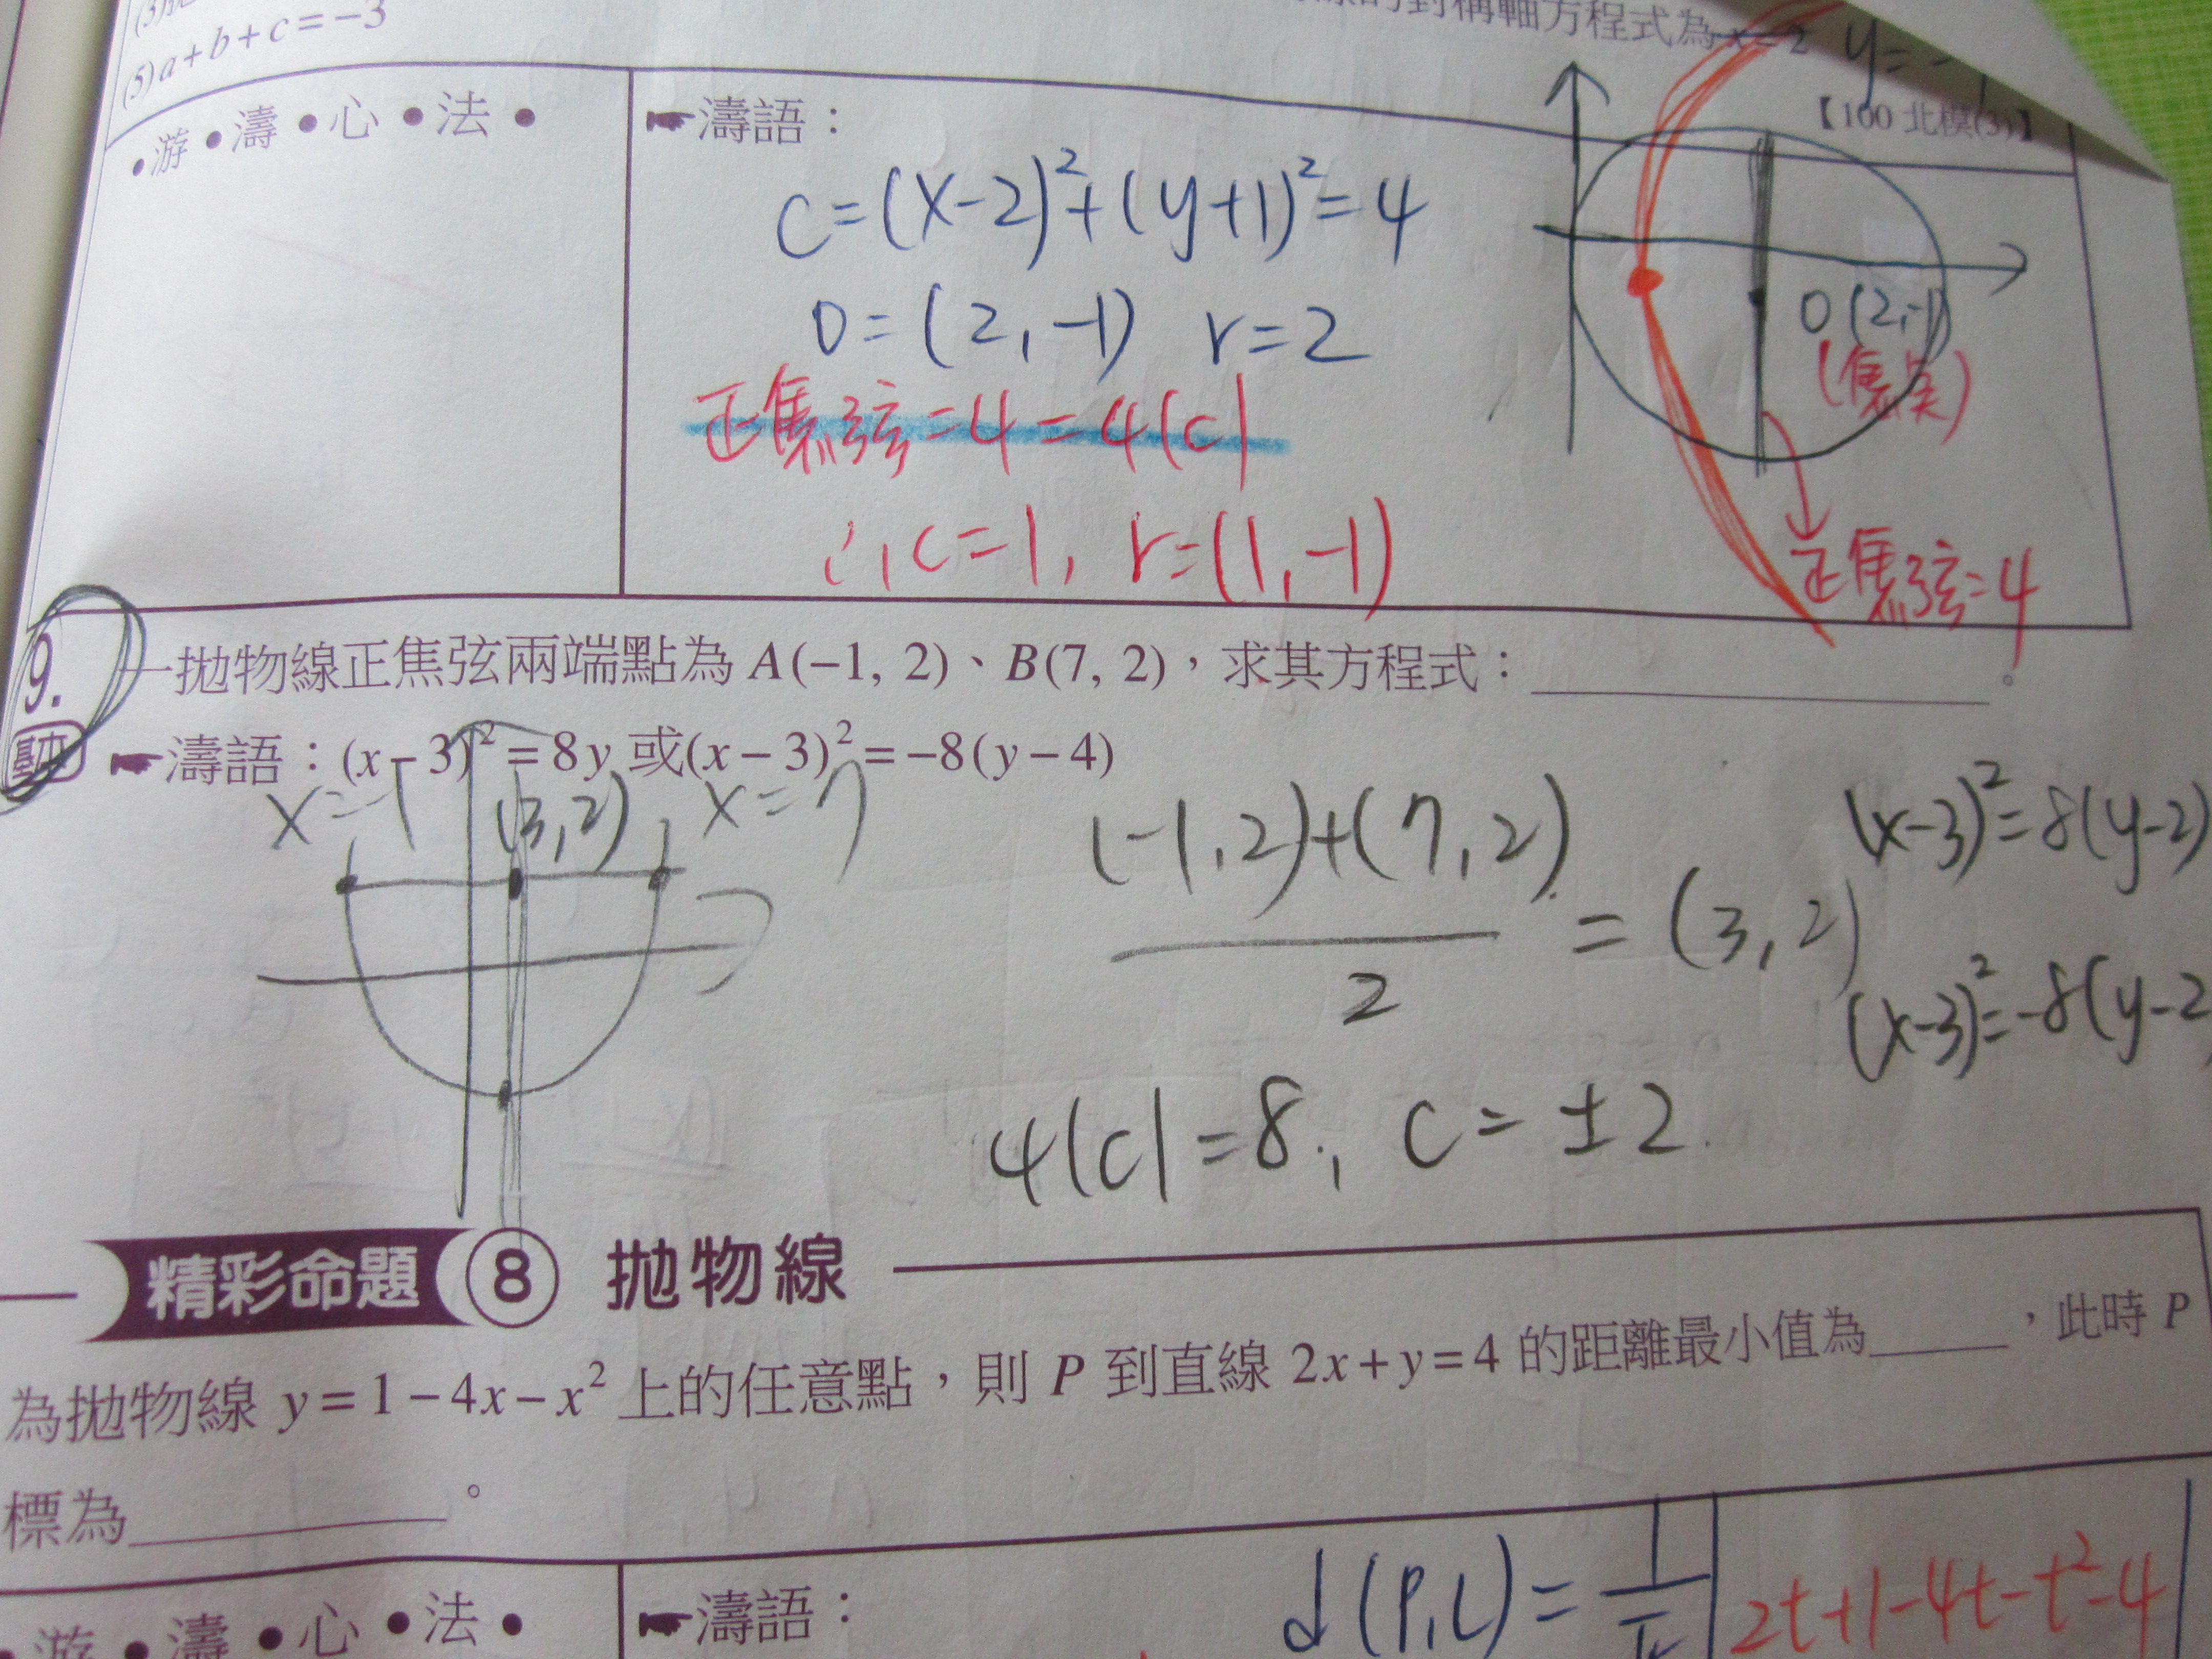 (5)a+b+c=-3
對稱軸方程式為 x=2 y=-1
【100 北模(3)】
•游•濤•心•法•
☛濤語：
C=(x-2)²+(y+1)²=4
O=(2,-1) r=2
正焦弦=4=4|c|
∴, c=1, r=(1,-1)
O(2,-1)
(焦點)
正焦弦=4
9. 一拋物線正焦弦兩端點為 A(-1, 2)、B(7, 2)，求其方程式：＿＿＿＿＿。
基本 ☛濤語：(x-3)²=8y 或(x-3)²=-8(y-4)
x=-1 (3,2) x=7
(-1,2)+(7,2)
2
=(3,2)
(x-3)²=8(y-2)
(x-3)²=-8(y-2
4|c|=8, c=±2.
精彩命題 8 拋物線
為拋物線 y=1-4x-x² 上的任意點，則 P 到直線 2x+y=4 的距離最小值為＿＿＿，此時 P
標為＿＿＿＿＿。
•游•濤•心•法•
☛濤語：
d(P,L)=1 |2t+1-4t-t²-4|